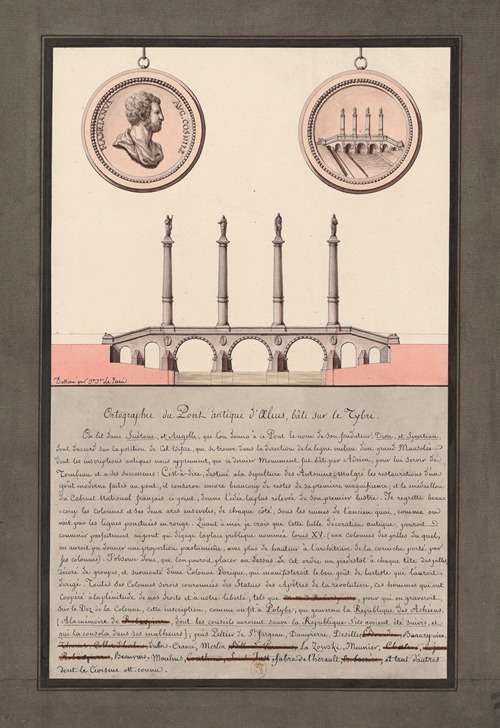 HADRIANVS AVG. COS III P.P.
Dessiné par J.n J.que Le Queu
Ortographie du Pont antique d'Ælius, bâti sur le Tybre.
On lit dans Suétone, et Augelle, que l'on donna à ce Pont le nom de son fondateur. Dion, et Spartian,
sont d'accord sur la position de cet Édifice, qui se trouve dans la direction de la ligne milieu d'un grand Mausolée
dont les inscriptions antiques nous apprennent, que ce dernier Monument fut bâti par Adrien, pour lui servir de
Tombeau et à ses successeurs: C'est-à-dire, destiné à la sépulture des Antonins. Malgré les restaurations d'un
goût moderne faites au pont, il conserve encore beaucoup de restes de sa première magnificence; et le médaillon
du Cabinet National français ci-joint, donne l'idée la plus relevée de son premier lustre. Je regrette beau-
coup les colonnes et ses deux arcs ensevelis, de chaque côté, sous les ruines de l'ancien quai, comme on
voit par les lignes ponctuées en rouge. Quant à moi je crois que cette belle décoration antique, pouroit
convenir parfaitement au pont qui dégage la place publique nommée Louis XV. (aux colonnes des piles duquel,
on auroit pu donner une proportion pæstumiène, avec plus de hauteur à l'arbitraire de la corniche portée par
les colonnes). J'observe donc, que l'on pouroit placer au dessus de cet ordre un piedéstal à chaque tête des piles
décoré de groupes, et surmonté d'une Colonne Dorique, qui manifesteroit le bon goût de l'artiste qui l'auroit
dirigé. Toutes ses Colonnes seroient couronnées des Statues des Apôtres de la révolution, ces hommes qui ont
Coopéré à la plénitude de nos droits et à notre liberté, tels que pour qui on graveroit,
sur le Dez de la Colonne, cette inscription, comme on fit à Polybe, qui gouverna la République des Achéens.
(A la mémoire de dont les conseils auroient sauvé la République s'ils avoient été suivis, et
qui la consola dans ses malheurs); puis Péltier de St. fargeau, Dampierre, Desilles, Beaurepaire,
Dubois-Crancé, Merlin La Zowski, Meunier,
Beauvais, Moulins, fabre de l'hérault, et tant d'autres
dont le Civisme est connu.